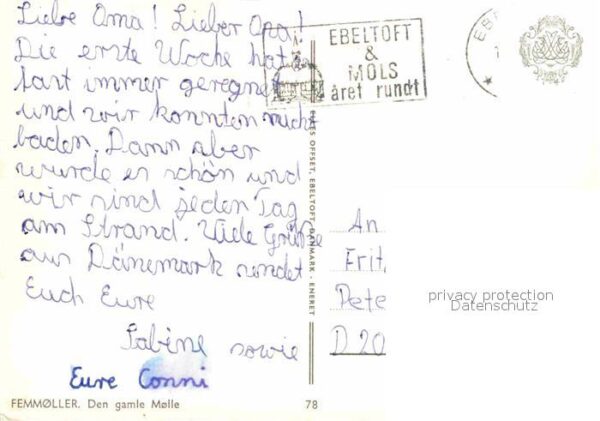 Liebe Oma! Lieber Opa!
Die erste Woche hat es
fast immer geregnet
und wir konnten nicht
baden. Dann aber
wurde es schön und
wir sind jeden Tag
am Strand. Viele Grüße
aus Dänemark sendet
Euch Eure
Sabine sowie
Eure Conni
FEMMØLLER. Den gamle Mølle
78
OFFSET, EBELTOFT, DANMARK - ENERET
EBELTOFT
&
MOLS
året rundt
EBE
An
Frit
Pete
D 20
privacy protection
Datenschutz